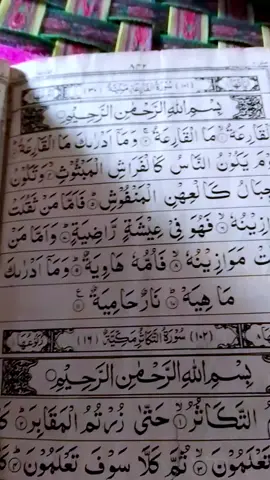 ٨٣٢
(١٠١) سُوْرَةُ الْقَارِعَةِ مَكِّيَّةٌ (٣٠)
بِسْمِ اللّٰهِ الرَّحْمٰنِ الرَّحِيْمِ
اَلْقَارِعَةُ مَا الْقَارِعَةُ وَمَاۤ اَدْرٰىكَ مَا الْقَارِعَةُ
يَكُوْنُ النَّاسُ كَالْفَرَاشِ الْمَبْثُوْثِ وَتَكُوْنُ
كَالْعِهْنِ الْمَنْفُوْشِ فَاَمَّا مَنْ ثَقُلَتْ
فَهُوَ فِيْ عِيْشَةٍ رَّاضِيَةٍ وَاَمَّا مَنْ
مَوَازِيْنُهٗ فَاُمُّهٗ هَاوِيَةٌ وَمَاۤ اَدْرٰىكَ
مَا هِيَهْ نَارٌ حَامِيَةٌ
(١٠٢) سُوْرَةُ التَّكَاثُرِ مَكِّيَّةٌ (١٦) رُكُوْعُهَا
بِسْمِ اللّٰهِ الرَّحْمٰنِ الرَّحِيْمِ
التَّكَاثُرُ حَتّٰى زُرْتُمُ الْمَقَابِرَ
تَعْلَمُوْنَ ثُمَّ كَلَّا سَوْفَ تَعْلَمُوْنَ